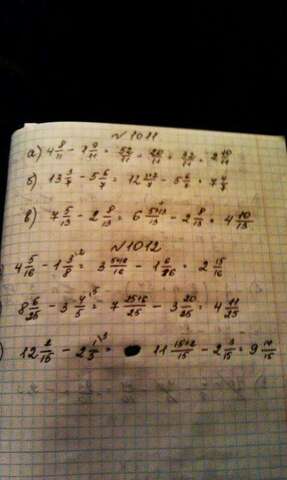 №1011
а) 4 8/11 - 1 9/11 = 52/11 - 20/11 = 32/11 = 2 10/11
б) 13 3/7 - 5 6/7 = 12 - 5 6/7 = 7 4/7
в) 7 5/13 - 2 8/13 = 6 5+13/13 - 2 8/13 = 4 10/13
№1012
4 5/16 - 1 3/8 = 3 5+16/16 - 1 6/16 = 2 15/16
8 6/25 - 3 4/5 = 7 25+6/25 - 3 20/25 = 4 11/25
12 2/15 - 2 1/5 = 11 15+2/15 - 2 3/15 = 9 14/15